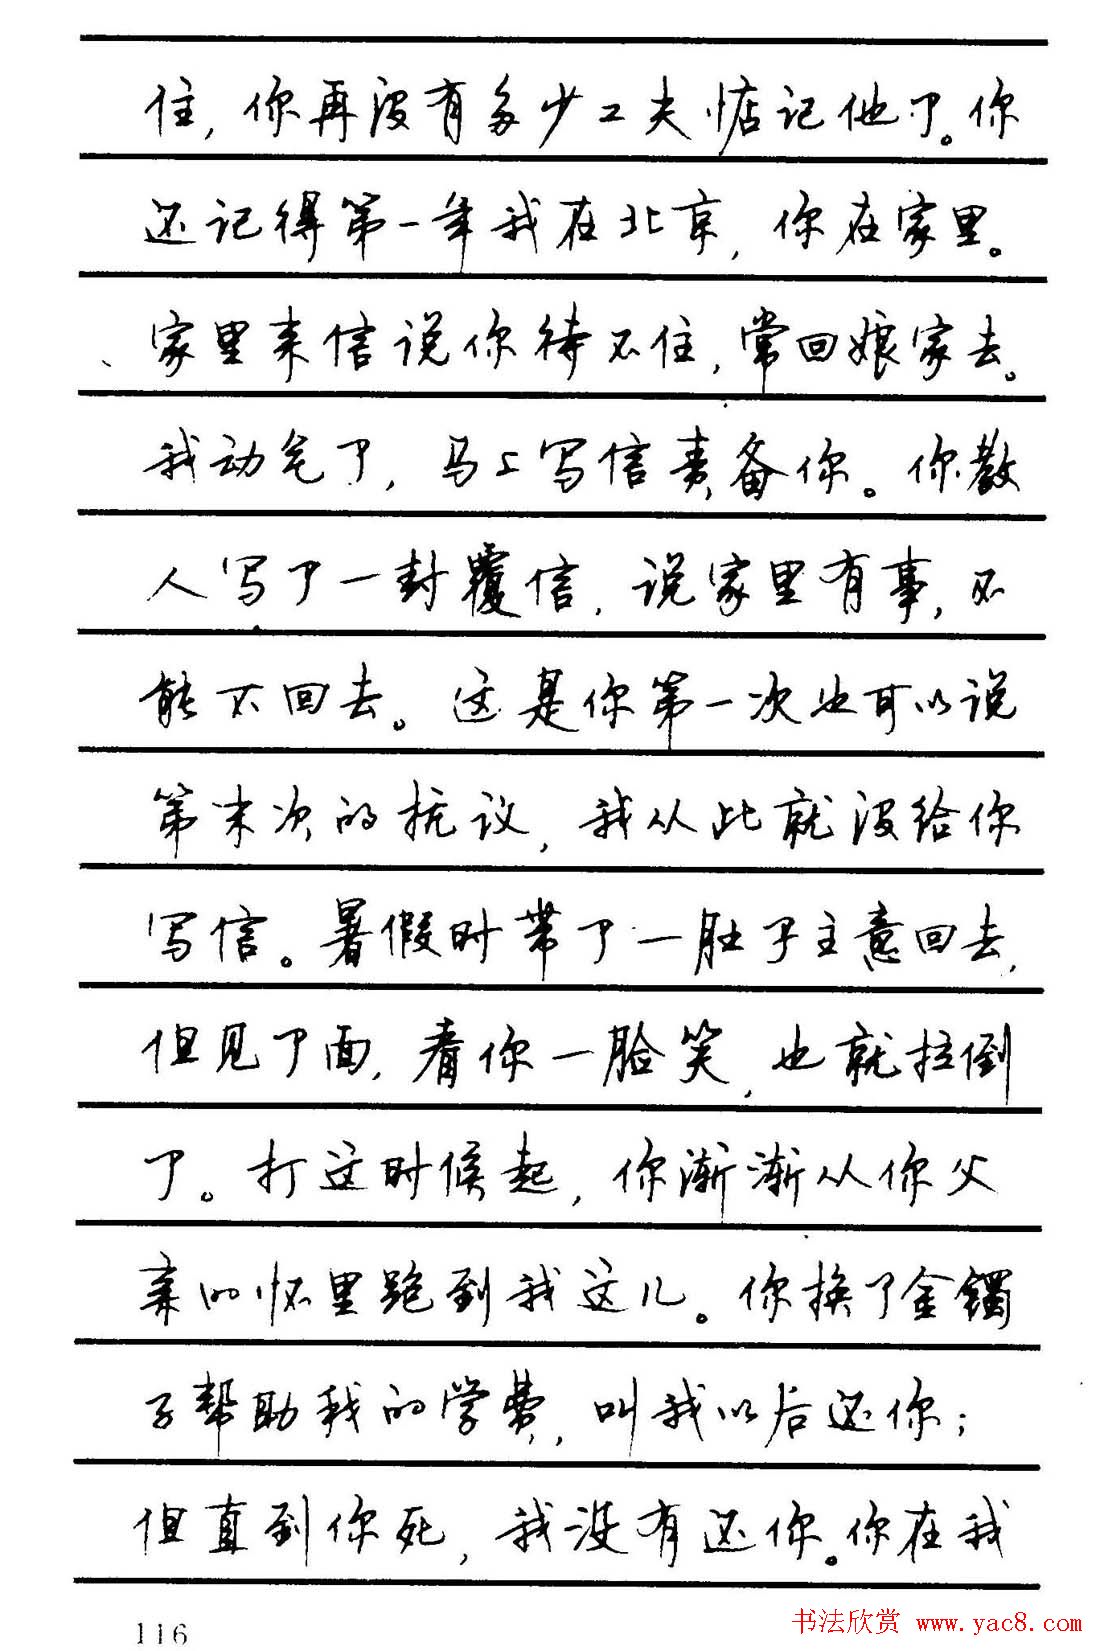 住，你再没有多少工夫惦记他了。你
还记得第一年我在北京，你在家里。
家里来信说你待不住，常回娘家去。
我动气了，马上写信责备你。你教
人写了一封覆信，说家里有事，不
能不回去。这是你第一次也可以说
第末次的抗议，我从此就没给你
写信。暑假时带了一肚子主意回去，
但见了面，看你一脸笑，也就拉倒
了。打这时候起，你渐渐从你父
亲的怀里跑到我这儿。你换了金镯
子帮助我的学费，叫我以后还你；
但直到你死，我没有还你。你在我
116
书法欣赏 www.yac8.com